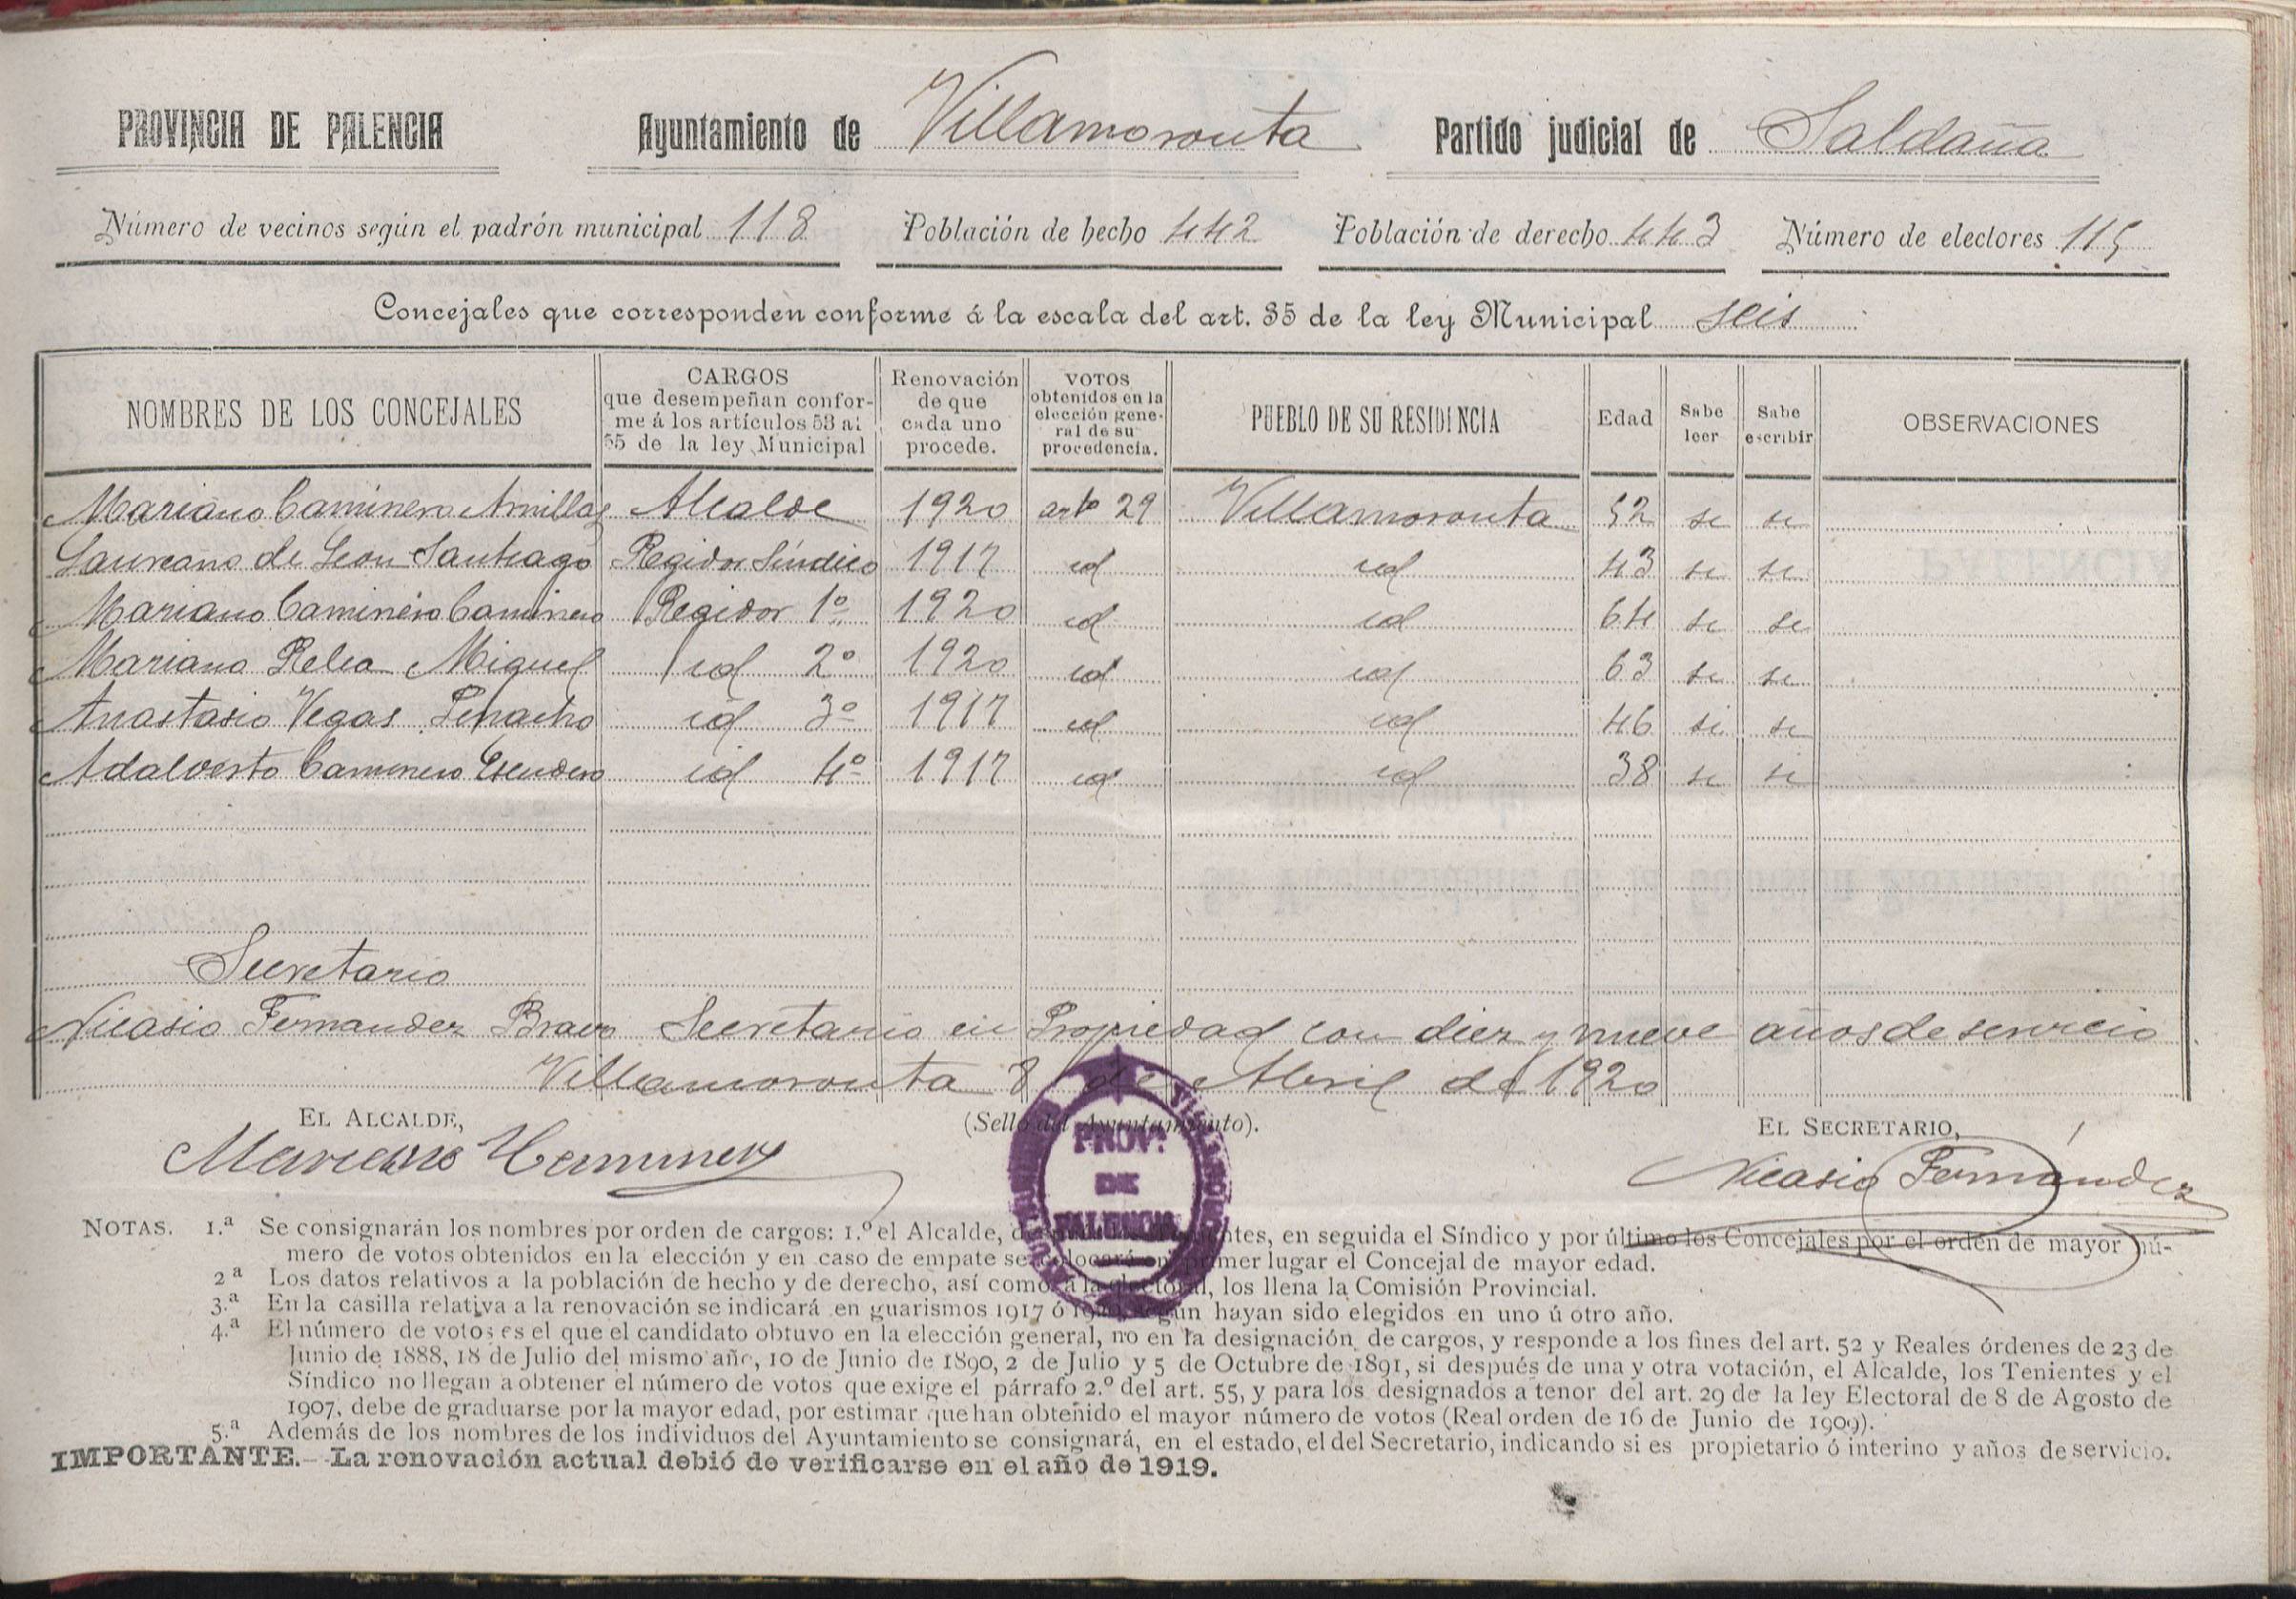 PROVINCIA DE PALENCIA Ayuntamiento de Villamoronta Partido judicial de Saldaña
Número de vecinos según el padrón municipal 118 Población de hecho 442 Población de derecho 443 Número de electores 115
Concejales que corresponden conforme á la escala del art. 35 de la ley Municipal seis
NOMBRES DE LOS CONCEJALES
CARGOS
que desempeñan confor-
me á los artículos 53 al
55 de la ley Municipal
Renovación
de que
cada uno
procede.
VOTOS
obtenidos en la
elección gene-
ral de su
procedencia.
PUEBLO DE SU RESIDENCIA
Edad
Sabe
leer
Sabe
escribir
OBSERVACIONES
Mariano Caminero Arnillas Alcalde 1920 arto 29 Villamoronta 52 si si
Laureano de Leon Santiago Regidor Síndico 1917 id id 43 si si
Mariano Caminero Caminero Regidor 1º 1920 id id 64 si si
Mariano Relea Miguel id 2º 1920 id id 63 si si
Anastasio Vegas Penacho id 3º 1917 id id 46 si si
Adalverto Caminero Escudero id 4º 1917 id id 38 si si
Secretario
Nicasio Fernandez Bravo Secretario en Propiedad con diez y nueve años de servicio
Villamoronta 8 de Abril de 1920
EL ALCALDE, (Sello del Ayuntamiento). EL SECRETARIO,
Mariano Caminero Nicasio Fernández
PROVª
DE
PALENCIA
NOTAS. 1.ª Se consignarán los nombres por orden de cargos: 1.º el Alcalde, después los Tenientes, en seguida el Síndico y por último los Concejales por el orden de mayor nú-
mero de votos obtenidos en la elección y en caso de empate se colocará en primer lugar el Concejal de mayor edad.
2ª Los datos relativos a la población de hecho y de derecho, así como a la electoral, los llena la Comisión Provincial.
3.ª En la casilla relativa a la renovación se indicará en guarismos 1917 ó 1920, según hayan sido elegidos en uno ú otro año.
4.ª El número de votos es el que el candidato obtuvo en la elección general, no en la designación de cargos, y responde a los fines del art. 52 y Reales órdenes de 23 de
Junio de 1888, 18 de Julio del mismo año, 10 de Junio de 1890, 2 de Julio y 5 de Octubre de 1891, si después de una y otra votación, el Alcalde, los Tenientes y el
Síndico no llegan a obtener el número de votos que exige el párrafo 2.º del art. 55, y para los designados a tenor del art. 29 de la ley Electoral de 8 de Agosto de
1907, debe de graduarse por la mayor edad, por estimar que han obtenido el mayor número de votos (Real orden de 16 de Junio de 1909).
5.ª Además de los nombres de los individuos del Ayuntamiento se consignará, en el estado, el del Secretario, indicando si es propietario ó interino y años de servicio.
IMPORTANTE.—La renovación actual debió de verificarse en el año de 1919.